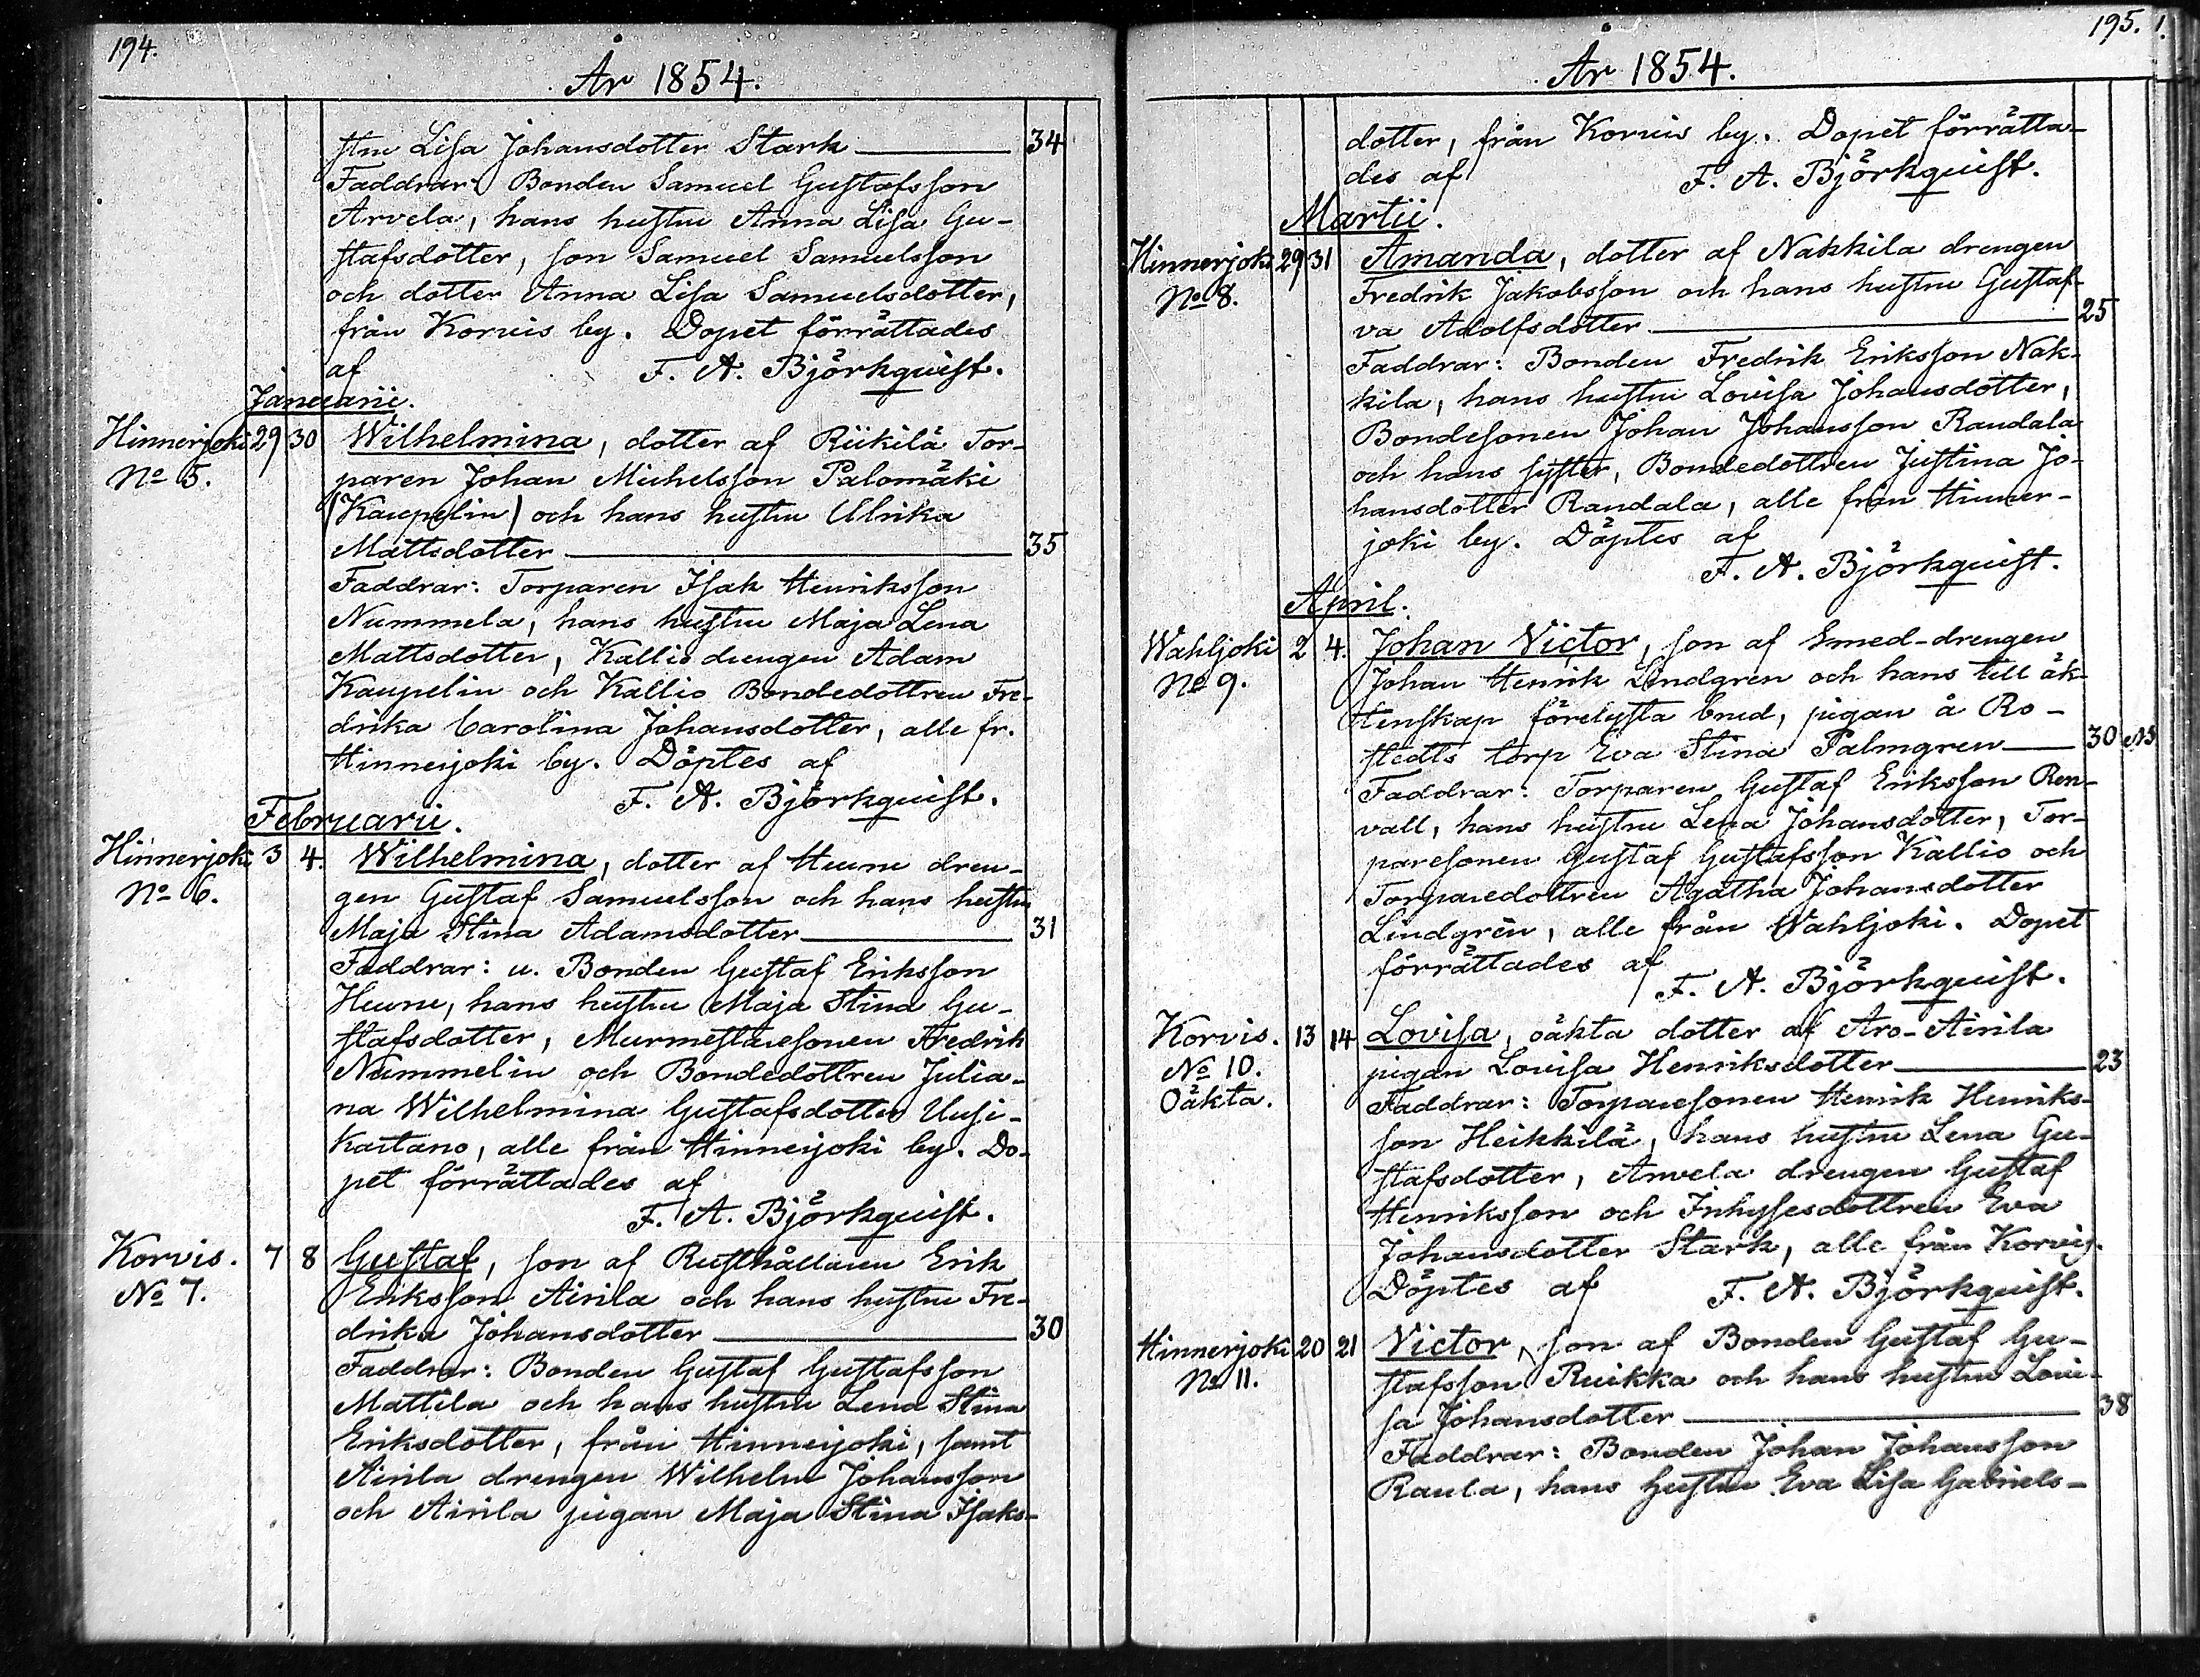 194.
År 1854.
stru Lisa Johansdotter Stark 34
Faddrar: Bonden Samuel Gustafsson
Arvela, hans hustru Anna Lisa Gu-
stafsdotter, son Samuel Samuelsson
och dotter Anna Lisa Samuelsdotter,
från Korvis by. Dopet förrättades
af F. A. Björkquist.
Januarii.
Hinnerjoki 29 30 Wilhelmina, dotter af Riikilä Tor-
No 5. paren Johan Michelsson Palomäki
(Kaupelin) och hans hustru Ulrika
Mattsdotter 35
Faddrar: Torparen Isak Henriksson
Nummela, hans hustru Maja Lena
Mattsdotter, Kallio drengen Adam
Kaupelin och Kallio Bondedottren Fre-
drika Carolina Johansdotter, alle fr.
Hinnerjoki by. Döptes af
F. A. Björkquist.
Februarii.
Hinnerjoki 3 4. Wilhelmina, dotter af Heunu dren-
No 6. gen Gustaf Samuelsson och hans hustru
Maja Stina Adamsdotter 31
Faddrar: u. Bonden Gustaf Eriksson
Heunu, hans hustru Maja Stina Gu-
stafsdotter, Murmestaresonen Fredrik
Nummelin och Bondedottren Julia-
na Wilhelmina Gustafsdotter Uusi-
Kartano, alle från Hinnerjoki by. Do-
pet förrättades af
F. A. Björkquist.
Korvis. 7 8 Gustaf, son af Rusthållaren Erik
No 7. Eriksson Airila och hans hustru Fre-
drika Johansdotter 30
Faddrar: Bonden Gustaf Gustafsson
Mattila och hans hustru Lena Stina
Eriksdotter, från Hinnerjoki, samt
Airila drengen Wilhelm Johansson
och Airila pigan Maja Stina Isaks-
195. 1.
År 1854.
dotter, från Korvis by. Dopet förrätta-
des af F. A. Björkquist.
Martii.
Hinnerjoki 29 31 Amanda, dotter af Nakkila drengen
No 8. Fredrik Jakobsson och hans hustru Gustaf-
va Adolfsdotter 25
Faddrar: Bonden Fredrik Eriksson Nak-
kila, hans hustru Lovisa Johansdotter,
Bondesonen Johan Johansson Raudala
och hans syster, Bondedottren Justina Jo-
hansdotter Randala, alle från Hinner-
joki by. Döptes af
F. A. Björkquist.
April.
Wahljoki 2 4. Johan Victor, son af Smed-drengen
No 9. Johan Henrik Lindgren och hans till äk-
tenskap förelysta brud, pigan å Ro-
stedts torp Eva Stina Palmgren 30
Faddrar: Torparen Gustaf Eriksson Ren-
vall, hans hustru Lena Johansdotter, Tor-
paresonen Gustaf Gustafsson Kallio och
Torparedottren Agatha Johansdotter
Lindgrén, alle från Wahljoki. Dopet
förrättades af
F. A. Björkquist.
Korvis. 13 14 Lovisa, oäkta dotter af Aro-Airila
No 10. pigan Lovisa Henriksdotter 23
Oäkta. Faddrar: Torparesonen Henrik Henriks-
son Heikkilä, hans hustru Lena Gu-
stafsdotter, Arvela drengen Gustaf
Henriksson och Inhysesdottren Eva
Johansdotter Stark, alle från Korvis.
Döptes af F. A. Björkquist.
Hinnerjoki 20 21 Victor, son af Bonden Gustaf Gu-
No 11. stafsson Ruikka och hans hustru Lovi-
sa Johansdotter 38
Faddrar: Bonden Johan Johansson
Raula, hans hustru Eva Lisa Gabriels-